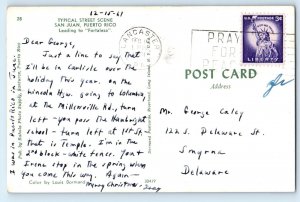 12-15-61
28
TYPICAL STREET SCENE
SAN JUAN, PUERTO RICO
Leading to "Fortaleza"
Dear George,
Just a line to say that
I'll be in Carlisle over the
holiday this year. On the
Lincoln Hgw. going to Columbia
at the Millersville Rd., turn
left - you pass the Hambright
school - turn left at 1st St.
That is Temple. I'm in the
2nd block - white fence. Your
Irene stop in the spring when
you come this way. Again -
Merry Christmas -
I was in Puerto Rico in June.
Color by Louis Bormand
LANCASTER
PRAY
FOR
U.S. POSTAGE
3¢
LIBERTY
POST CARD
Address
Mr. George Caley
122 S. Delaware St.
Smyrna
Delaware